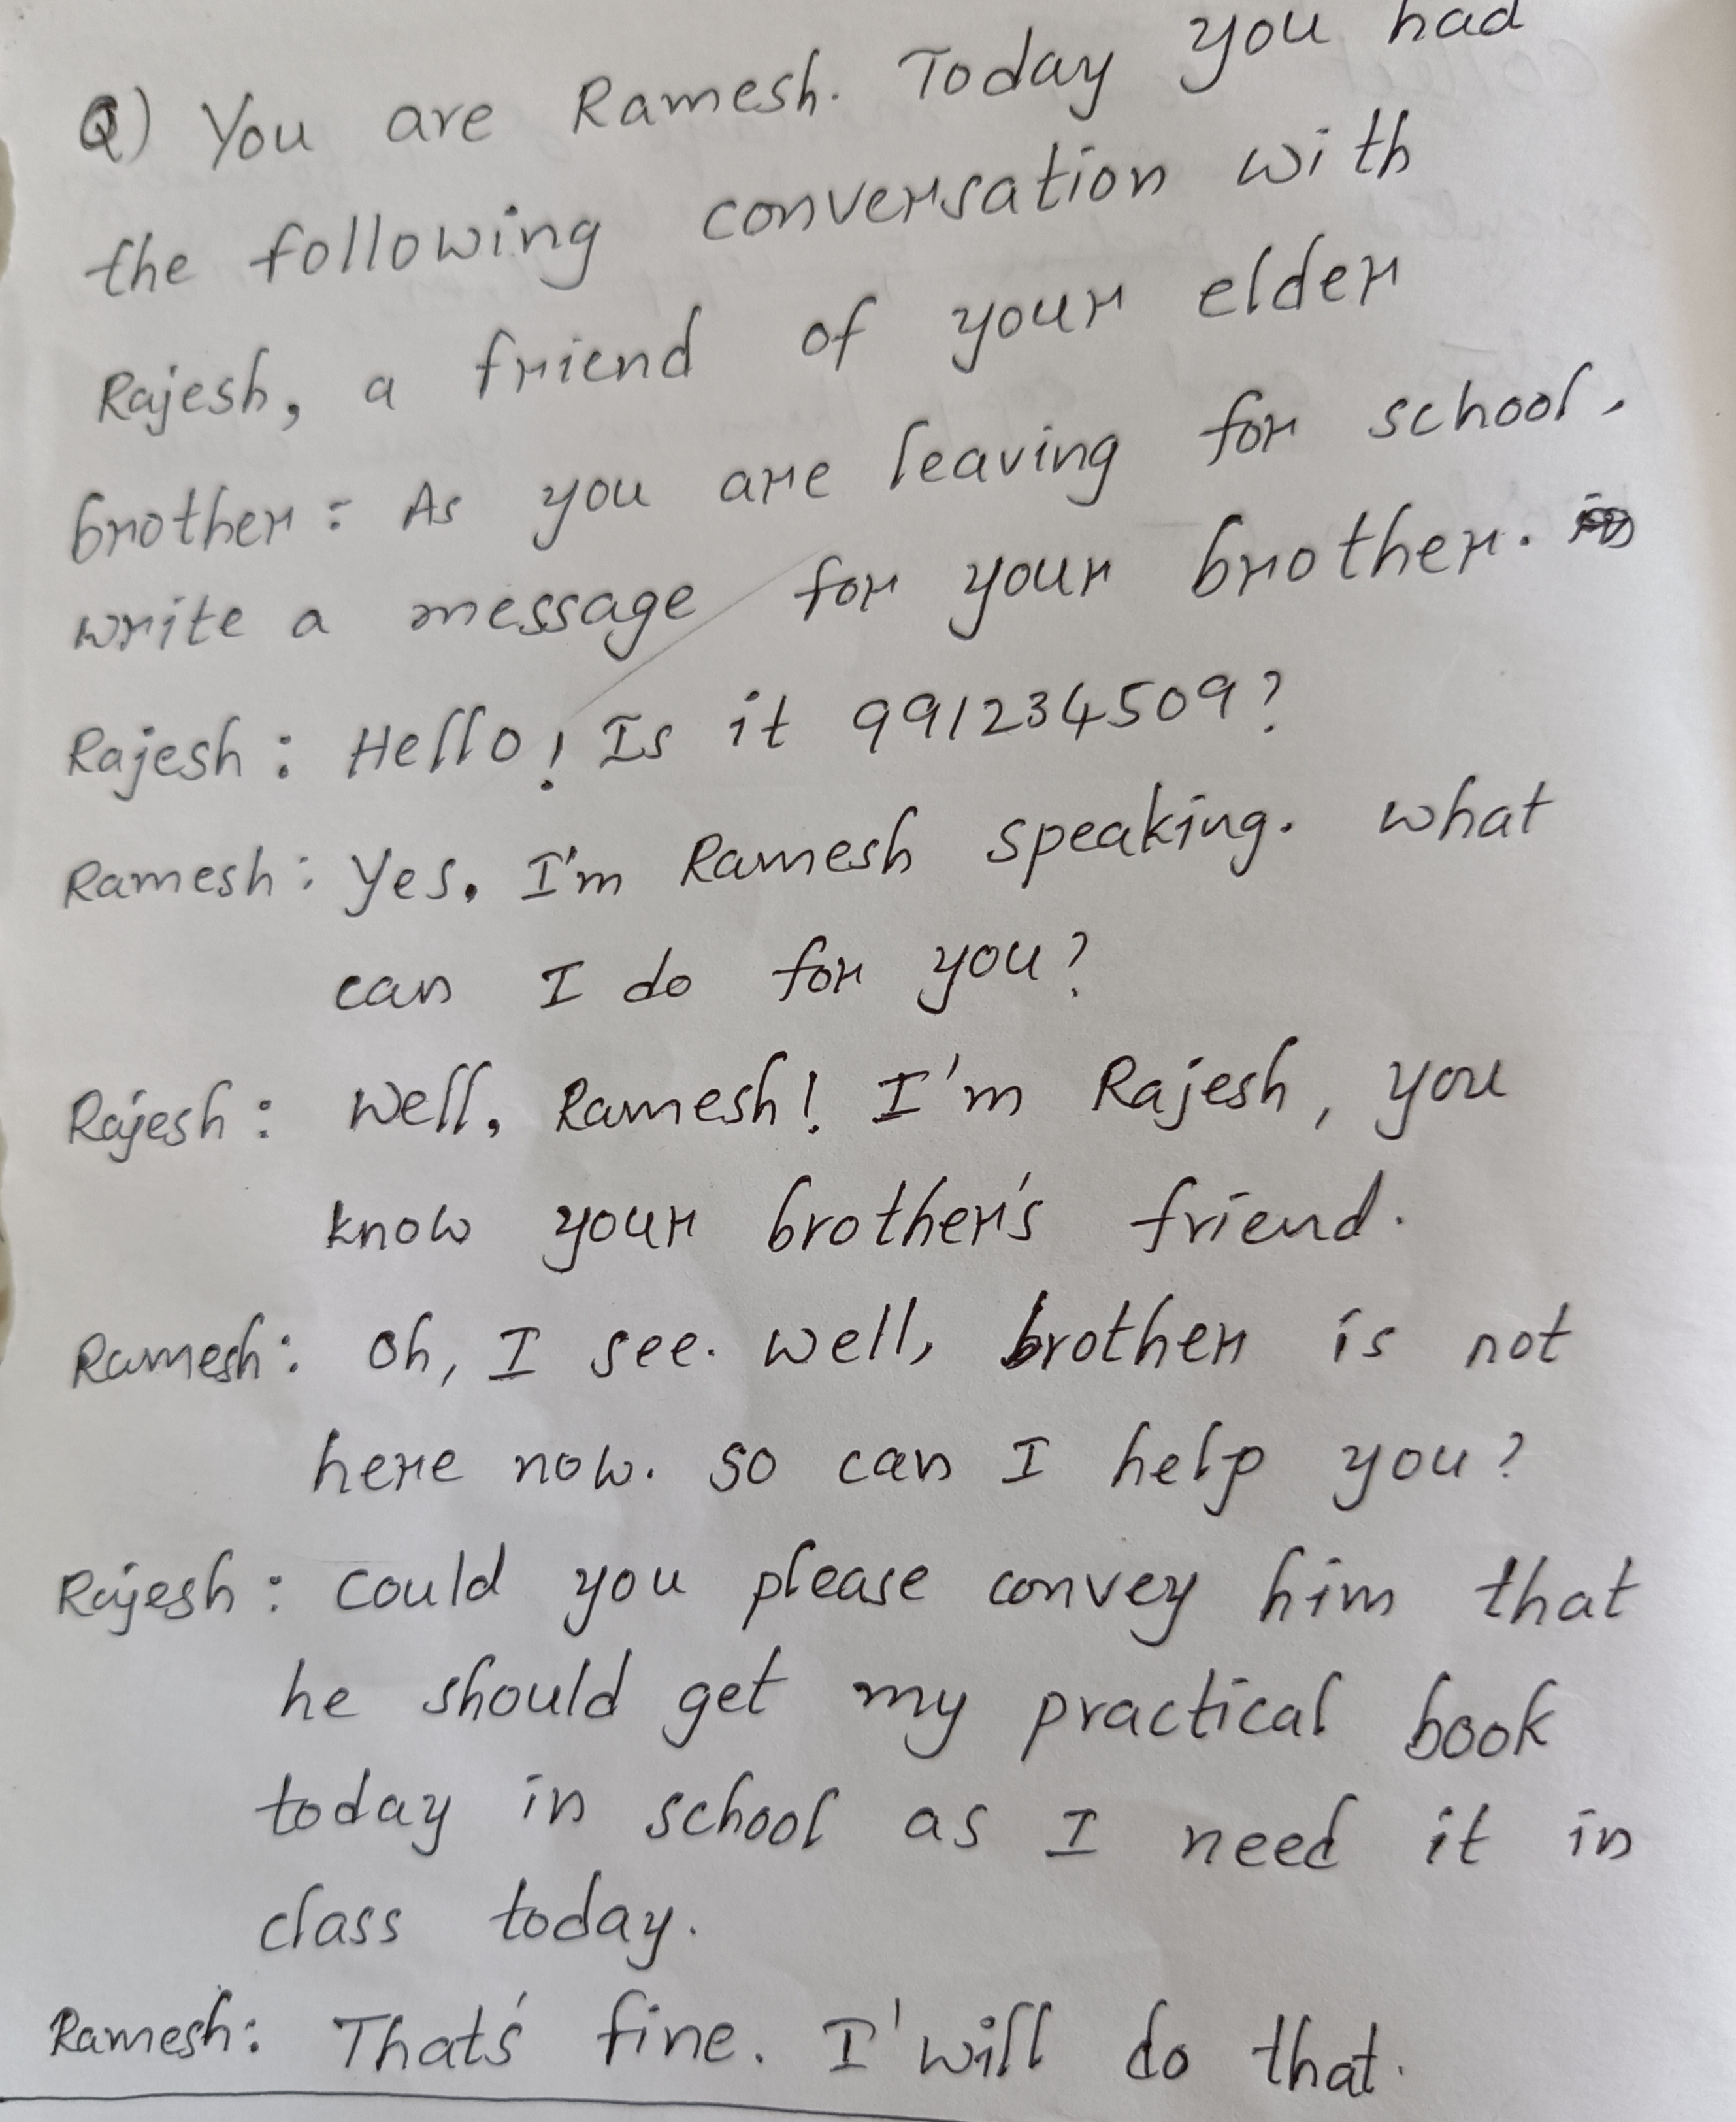 Q) You are Ramesh. Today you had
the following conversation with
Rajesh, a friend of your elder
brother: As you are leaving for school.
write a message for your brother.
Rajesh: Hello! Is it 991234509?
Ramesh: Yes. I'm Ramesh speaking. what
can I do for you?
Rajesh: Well, Ramesh! I'm Rajesh, you
know your brother's friend.
Ramesh: Oh, I see. well, brother is not
here now. so can I help you?
Rajesh: could you please convey him that
he should get my practical book
today in school as I need it in
class today.
Ramesh: That's fine. I'will do that.